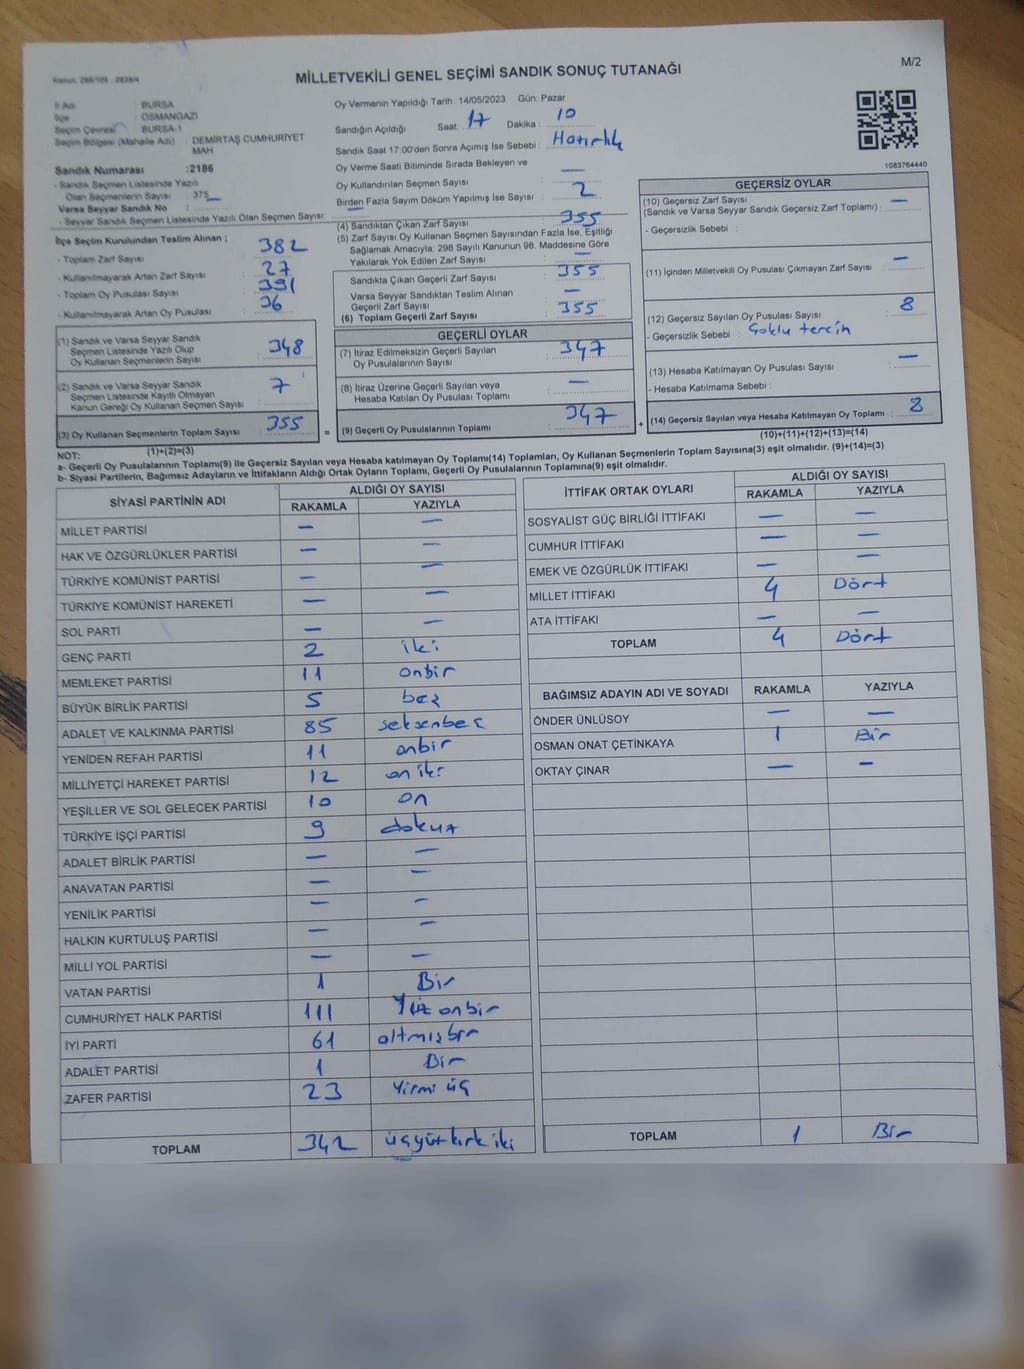 MİLLETVEKİLİ GENEL SEÇİMİ SANDIK SONUÇ TUTANAĞI
M/2
İl Adı : BURSA
İlçe : OSMANGAZİ
Seçim Çevresi : BURSA-1
Seçim Bölgesi (Mahalle Adı) : DEMİRTAŞ CUMHURİYET MAH
Sandık Numarası :2186
- Sandık Seçmen Listesinde Yazılı
Olan Seçmenlerin Sayısı : 375
Varsa Seyyar Sandık No :
- Seyyar Sandık Seçmen Listesinde Yazılı Olan Seçmen Sayısı:
Oy Vermenin Yapıldığı Tarih :14/05/2023 Gün: Pazar
Sandığın Açıldığı Saat: 17 Dakika : 10
Sandık Saat 17:00'den Sonra Açımış İse Sebebi : Hazırlık
Oy Verme Saati Bitiminde Sırada Bekleyen ve
Oy Kullandırılan Seçmen Sayısı : —
Birden Fazla Sayım Döküm Yapılmış İse Sayısı : 2
1083764440
İlçe Seçim Kurulundan Teslim Alınan ;
- Toplam Zarf Sayısı : 382
- Kullanılmayarak Artan Zarf Sayısı : 27
- Toplam Oy Pusulası Sayısı : 391
- Kullanılmayarak Artan Oy Pusulası : 36
(1) Sandık ve Varsa Seyyar Sandık
Seçmen Listesinde Yazılı Olup
Oy Kullanan Seçmenlerin Sayısı : 348
(2) Sandık ve Varsa Seyyar Sandık
Seçmen Listesinde Kayıtlı Olmayan
Kanun Gereği Oy Kullanan Seçmen Sayısı : 7
(3) Oy Kullanan Seçmenlerin Toplam Sayısı : 355
(1)+(2)=(3)
(4) Sandıktan Çıkan Zarf Sayısı : 355
(5) Zarf Sayısı Oy Kullanan Seçmen Sayısından Fazla İse, Eşitliği
Sağlamak Amacıyla; 298 Sayılı Kanunun 98. Maddesine Göre
Yakılarak Yok Edilen Zarf Sayısı : —
Sandıkta Çıkan Geçerli Zarf Sayısı : 355
Varsa Seyyar Sandıktan Teslim Alınan
Geçerli Zarf Sayısı : —
(6) Toplam Geçerli Zarf Sayısı : 355
GEÇERLİ OYLAR
(7) İtiraz Edilmeksizin Geçerli Sayılan
Oy Pusulalarının Sayısı : 347
(8) İtiraz Üzerine Geçerli Sayılan veya
Hesaba Katılan Oy Pusulası Toplamı : —
(9) Geçerli Oy Pusulalarının Toplamı : 347
GEÇERSİZ OYLAR
(10) Geçersiz Zarf Sayısı
(Sandık ve Varsa Seyyar Sandık Geçersiz Zarf Toplamı) : —
- Geçersizlik Sebebi :
(11) İçinden Milletvekili Oy Pusulası Çıkmayan Zarf Sayısı : —
(12) Geçersiz Sayılan Oy Pusulası Sayısı : 8
- Geçersizlik Sebebi : Çoklu tercih
(13) Hesaba Katılmayan Oy Pusulası Sayısı : —
- Hesaba Katılmama Sebebi :
(14) Geçersiz Sayılan veya Hesaba Katılmayan Oy Toplamı : 8
(10)+(11)+(12)+(13)=(14)
NOT:
a- Geçerli Oy Pusulalarının Toplamı(9) ile Geçersiz Sayılan veya Hesaba katılmayan Oy Toplamı(14) Toplamları, Oy Kullanan Seçmenlerin Toplam Sayısına(3) eşit olmalıdır. (9)+(14)=(3)
b- Siyasi Partilerin, Bağımsız Adayların ve İttifakların Aldığı Ortak Oyların Toplamı, Geçerli Oy Pusulalarının Toplamına(9) eşit olmalıdır.
SİYASİ PARTİNİN ADI ALDIĞI OY SAYISI
RAKAMLA YAZIYLA
MİLLET PARTİSİ — —
HAK VE ÖZGÜRLÜKLER PARTİSİ — —
TÜRKİYE KOMÜNİST PARTİSİ — —
TÜRKİYE KOMÜNİST HAREKETİ — —
SOL PARTİ — —
GENÇ PARTİ 2 iki
MEMLEKET PARTİSİ 11 onbir
BÜYÜK BİRLİK PARTİSİ 5 beş
ADALET VE KALKINMA PARTİSİ 85 seksenbeş
YENİDEN REFAH PARTİSİ 11 onbir
MİLLİYETÇİ HAREKET PARTİSİ 12 on iki
YEŞİLLER VE SOL GELECEK PARTİSİ 10 on
TÜRKİYE İŞÇİ PARTİSİ 9 dokuz
ADALET BİRLİK PARTİSİ — —
ANAVATAN PARTİSİ — —
YENİLİK PARTİSİ — —
HALKIN KURTULUŞ PARTİSİ — —
MİLLİ YOL PARTİSİ — —
VATAN PARTİSİ 1 Bir
CUMHURİYET HALK PARTİSİ 111 Yüz onbir
İYİ PARTİ 61 altmışbir
ADALET PARTİSİ 1 Bir
ZAFER PARTİSİ 23 Yirmi üç
TOPLAM 342 üçyüzkırk iki
İTTİFAK ORTAK OYLARI ALDIĞI OY SAYISI
RAKAMLA YAZIYLA
SOSYALİST GÜÇ BİRLİĞİ İTTİFAKI — —
CUMHUR İTTİFAKI — —
EMEK VE ÖZGÜRLÜK İTTİFAKI — —
MİLLET İTTİFAKI 4 Dört
ATA İTTİFAKI — —
TOPLAM 4 Dört
BAĞIMSIZ ADAYIN ADI VE SOYADI RAKAMLA YAZIYLA
ÖNDER ÜNLÜSOY — —
OSMAN ONAT ÇETİNKAYA 1 Bir
OKTAY ÇINAR — —
TOPLAM 1 Bir